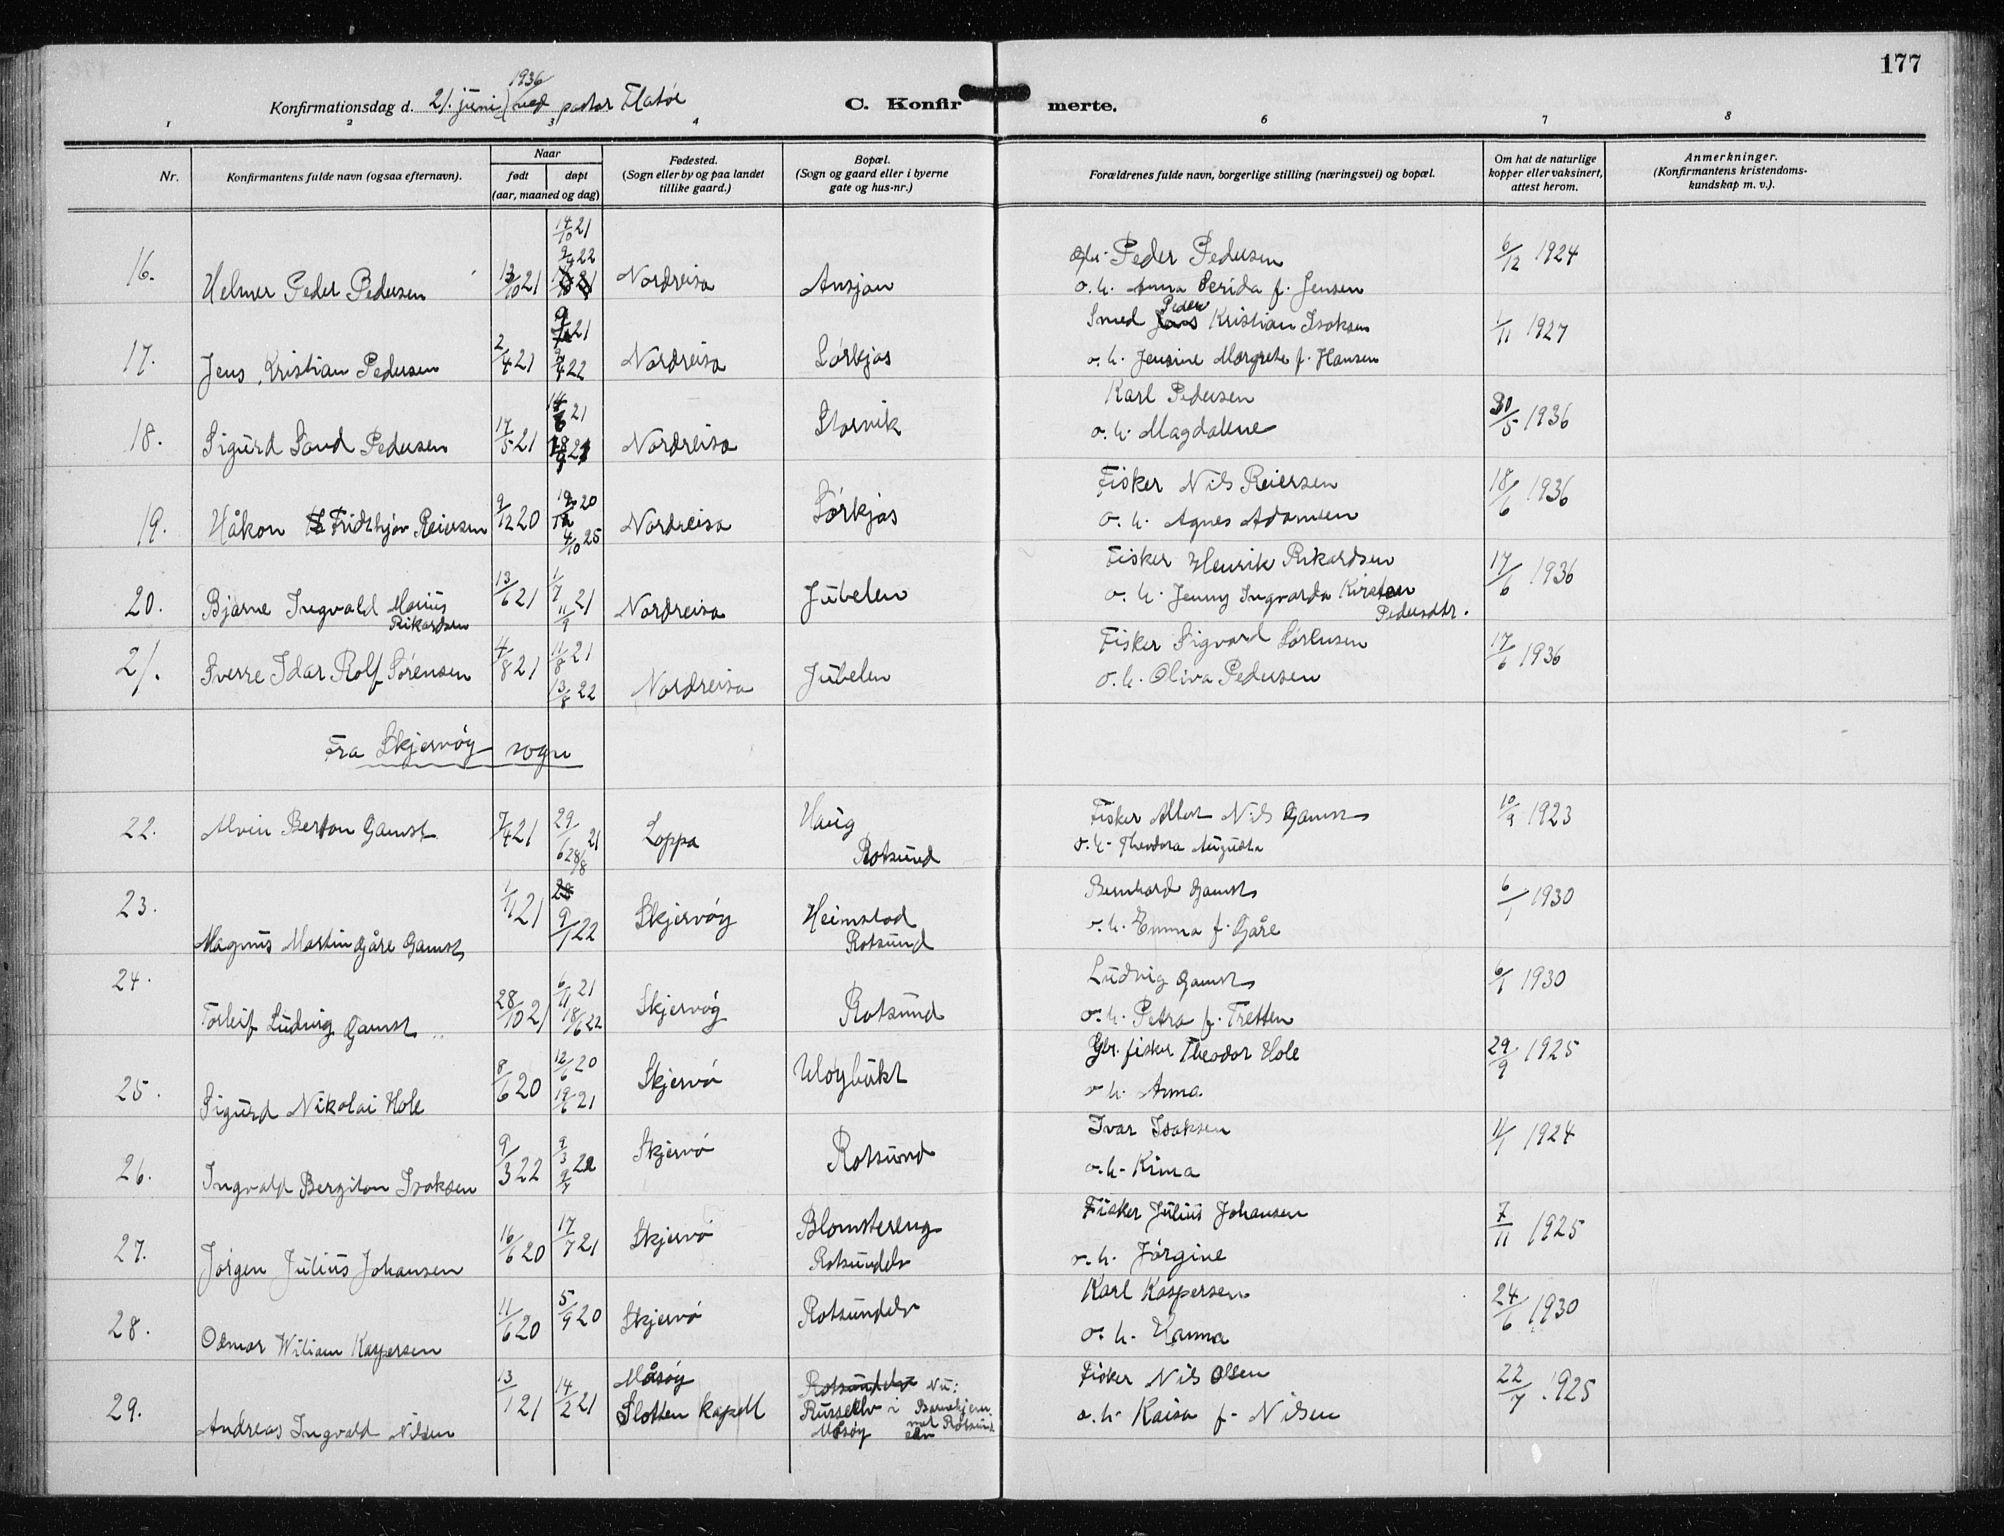 177
1936
Konfirmationsdag d. 21. juni ved pastor Flatöe
C. Konfirmerte.
1 2 3 4 6 7 8
Nr.
Konfirmantens fulde navn (ogsaa efternavn).
Naar
født døpt
(aar, maaned og dag)
Fødested.
(Sogn eller by og paa landet
tillike gaard.)
Bopæl.
(Sogn og gaard eller i byerne
gate og hus-nr.)
Forældrenes fulde navn, borgerlige stilling (næringsvei) og bopæl.
Om hat de naturlige
kopper eller vaksinert,
attest herom.
Anmerkninger.
(Konfirmantens kristendoms-
kundskap m. v.).
16. Helmer Peder Pedersen 13/10 21 14/10 21 9/9 22 Nordreisa Ansjon
Peder Pedersen 6/12 1924
o. h. Anna Serida f. Jensen
17. Jens Kristian Pedersen 2/4 21 Nordreisa Sörkjos
Smed Peder Kristian Isaksen 1/11 1927
o. h. Jensine Margrete f. Hansen
18. Sigurd Sand Pedersen 17/5 21 Nordreisa Storvik
Karl Pedersen 30/5 1936
o. h. Magdalene
19. Håkon Fridthjov Reiersen 9/12 20 19/12 20 4/10 25 Nordreisa Sörkjos
Fisker Nils Reiersen 18/6 1936
o. h. Agnes Adamsen
20. Bjarne Ingvald Marius
Rikardsen 13/6 21 1/7 21 11/9 Nordreisa Jubelen
Fisker Henrik Rikardsen 17/6 1936
o. h. Jenny Ingvarda Kirsten
Pedersdtr.
21. Sverre Idar Rolf Sörensen 4/8 21 11/8 21 13/8 22 Nordreisa Jubelen
Fisker Sigvard Sörensen 17/6 1936
o. h. Oliva Pedersen
Fra Skjervöy sogn
22. Alvin Berton Gamst 7/4 21 29/6 21 28/8 Loppa Haug
Rotsund
Fisker Albert Nils Gamst 10/9 1923
o. h. Theodora Augusta
23. Magnus Martin Gåre Gamst 1/11 21 9/1 22 Skjervöy Heimstad
Rotsund
Bernhard Gamst 6/1 1930
o. h. Emma f. Gåre
24. Torleif Ludvig Gamst 28/10 21 6/11 21 18/6 22 Skjervöy Rotsund
Ludvig Gamst 6/1 1930
o. h. Petra f. Tretten
25. Sigurd Nikolai Hole 8/6 20 12/6 20 19/6 21 Skjervö Uløybukt
Gbr. fisker Theodor Hole 29/9 1925
o. h. Anna
26. Ingvald Bergiton Isaksen 9/3 22 9/3 22 9/7 Skjervö Rotsund
Ivar Isaksen 11/1 1924
o. h. Kima
27. Jörgen Julius Johansen 16/6 20 17/7 21 Skjervö Blomstereng
Rotsundelv
Fisker Julius Johansen 7/11 1925
o. h. Jörgine
28. Odmar Wiliam Kaspersen 11/6 20 5/9 20 Skjervö Rotsundelv
Karl Kaspersen 24/6 1930
o. h. Hanna
29. Andreas Ingvald Nilsen 13/1 21 14/2 21 Måsöy
Slotten kapell
Rotsundelv Nu:
Russelv i
Måsöy
Fisker Nils Olsen 22/7 1925
o. h. Kaisa f. Nilsen